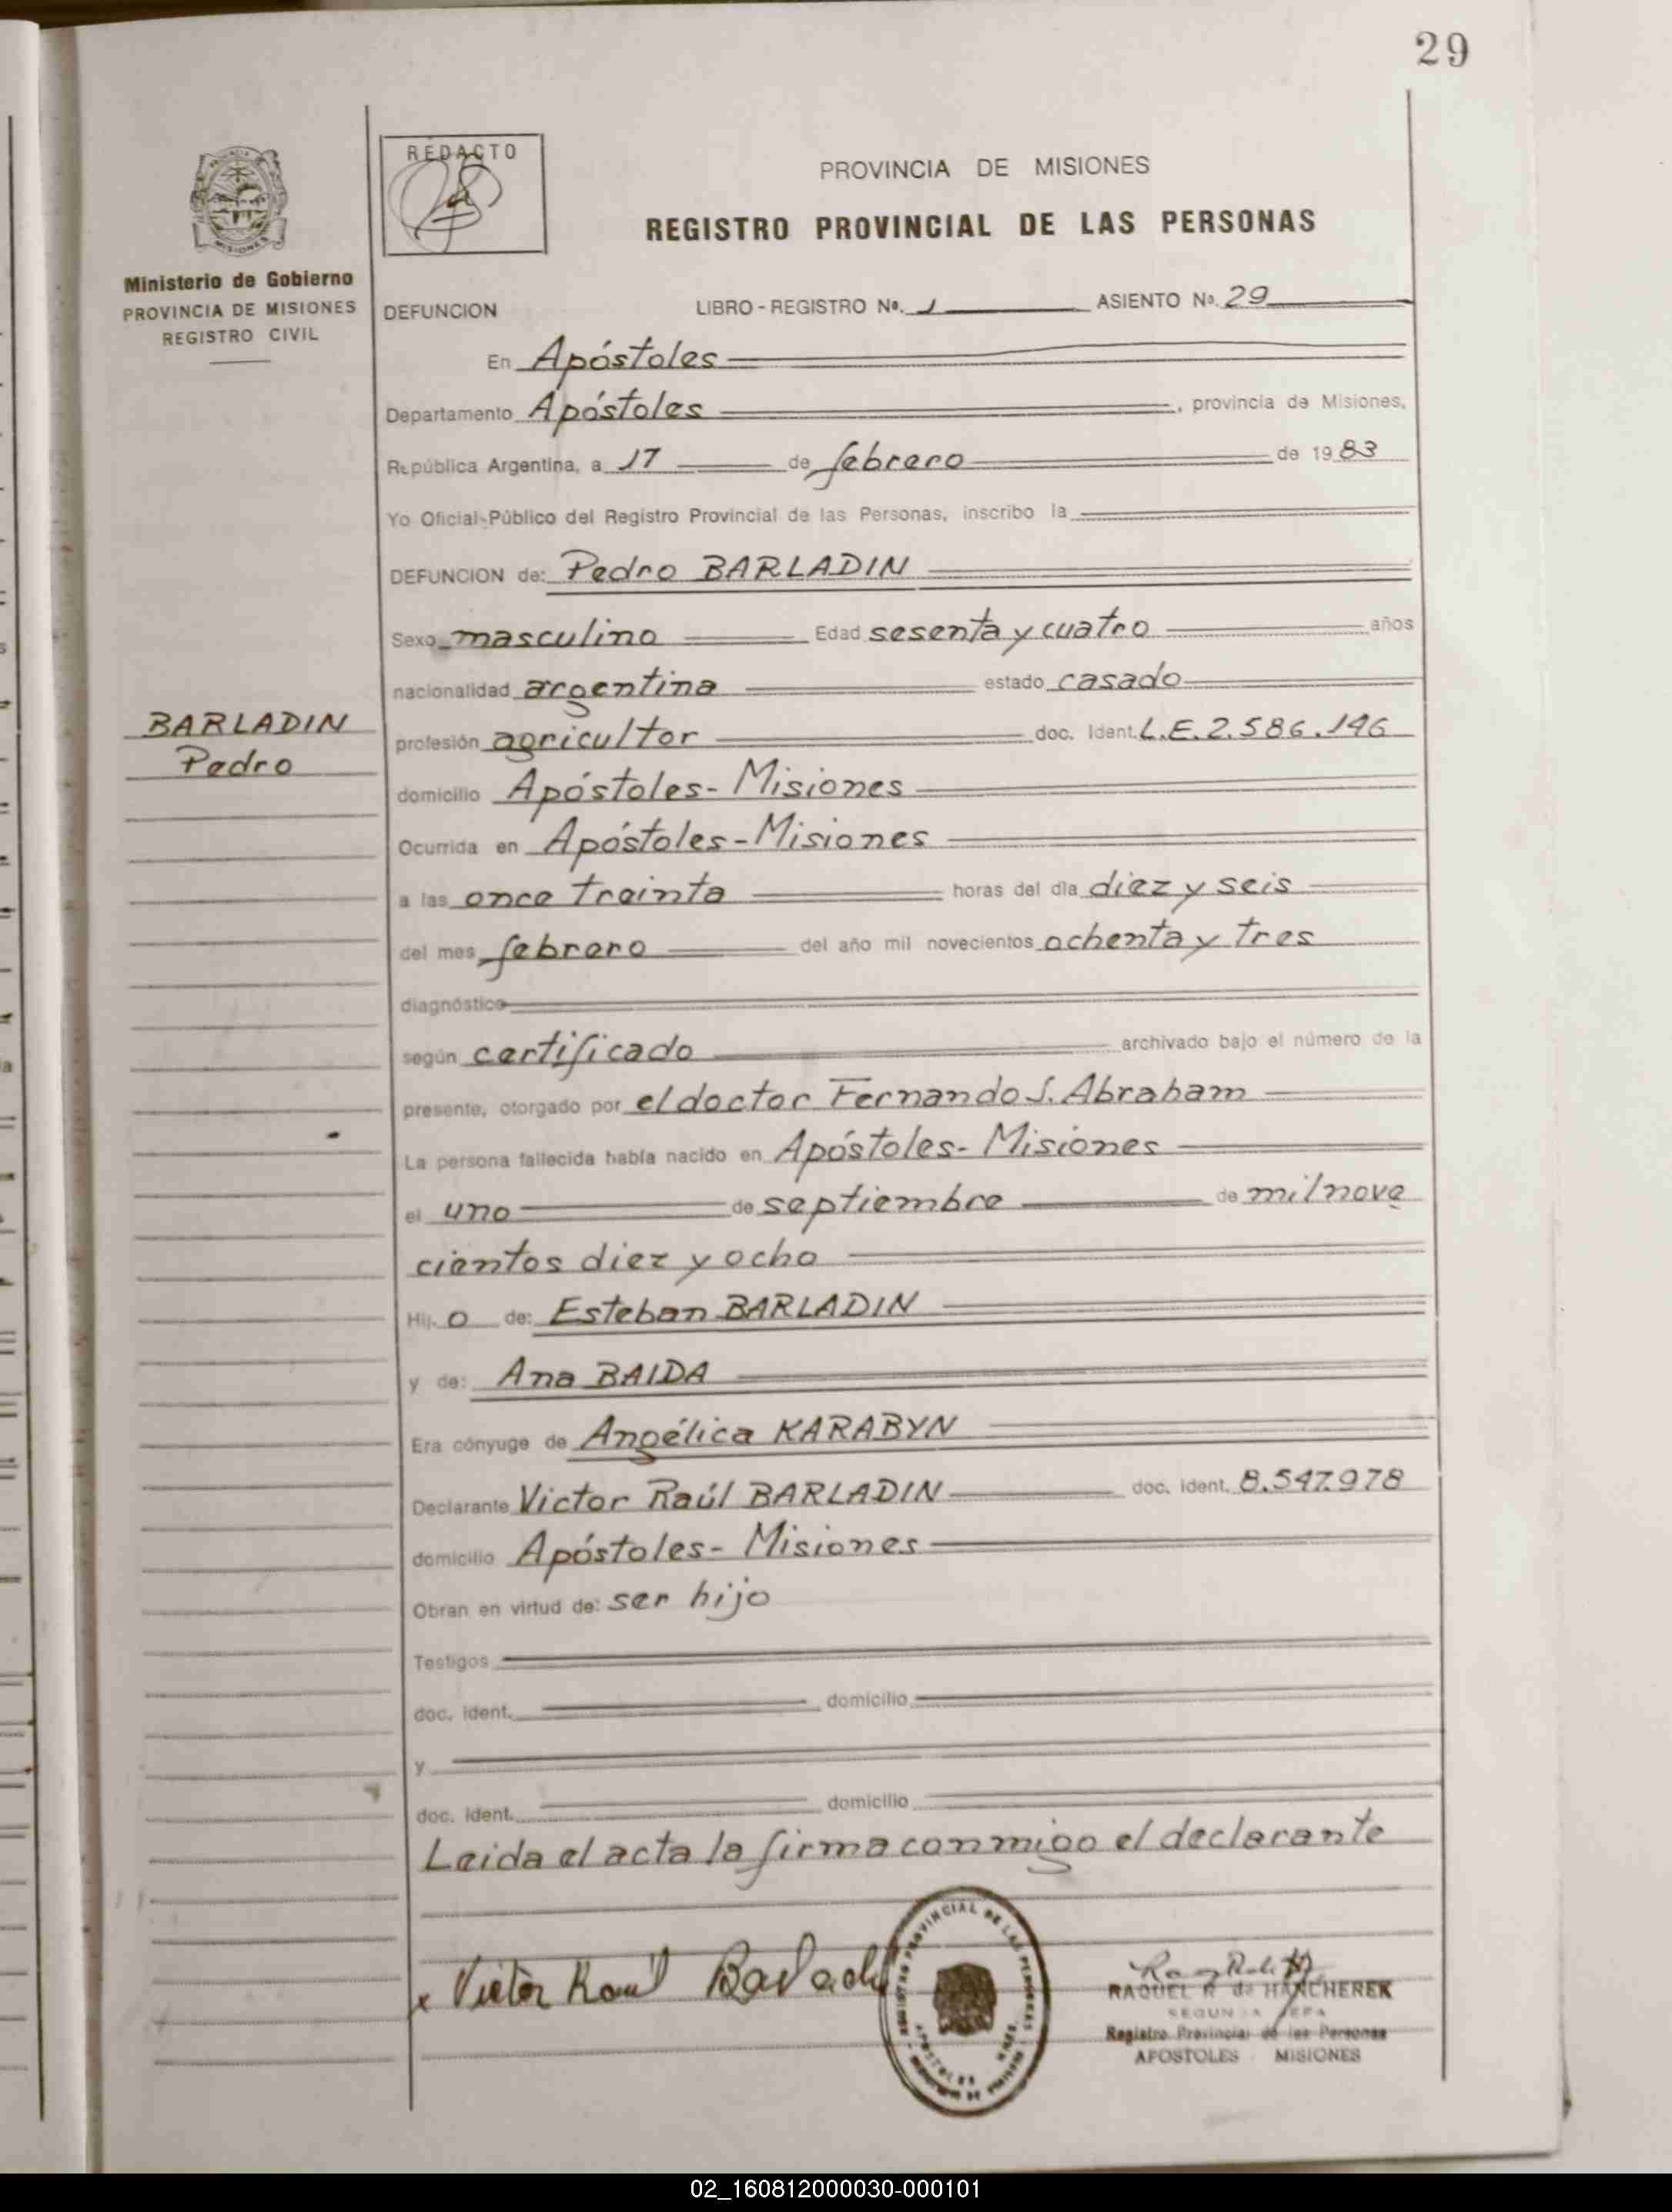 29
REDACTO
PROVINCIA DE MISIONES
REGISTRO PROVINCIAL DE LAS PERSONAS
Ministerio de Gobierno
PROVINCIA DE MISIONES
REGISTRO CIVIL
DEFUNCION LIBRO - REGISTRO Nº. 1 ASIENTO Nº. 29
En Apóstoles
Departamento Apóstoles, provincia de Misiones,
República Argentina, a 17 de febrero de 1983
Yo Oficial Público del Registro Provincial de las Personas, inscribo la
DEFUNCION de: Pedro BARLADIN
Sexo masculino Edad sesenta y cuatro años
nacionalidad argentina estado casado
BARLADIN
Pedro
profesión agricultor doc. Ident. L.E. 2.586.146
domicilio Apóstoles - Misiones
Ocurrida en Apóstoles - Misiones
a las once treinta horas del día diez y seis
del mes febrero del año mil novecientos ochenta y tres
diagnóstico
según certificado archivado bajo el número de la
presente, otorgado por el doctor Fernando J. Abraham
La persona fallecida había nacido en Apóstoles - Misiones
el uno de septiembre de mil nove
cientos diez y ocho
Hijo de: Esteban BARLADIN
y de: Ana BAIDA
Era cónyuge de Angélica KARABYN
Declarante Victor Raúl BARLADIN doc. ident. 8.547.978
domicilio Apóstoles - Misiones
Obran en virtud de: ser hijo
Testigos
doc. ident. domicilio
y
doc. ident. domicilio
Leida el acta la firma conmigo el declarante
x Victor Raul Barladin
REGISTRO PROVINCIAL DE LAS PERSONAS
APOSTOLES
RAQUEL R. de HANCHEREK
SEGUNDA JEFA
Registro Provincial de las Personas
APOSTOLES MISIONES
02_160812000030-000101